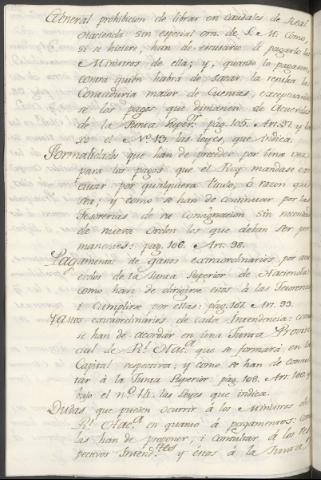 General prohibicion de librar en caudales de Real
Hacienda sin especial orn. de S. M. Como,
si se hiciere, han de escusarse á pagarlo los
Ministros de ella; y, quando la pagaren,
contra quién habrá de sacar la resulta la
Contaduria maior de Cuentas, exceptuando
á los pagos que dimanen de Acuerdos
de la Junta Super.r pág. 105. Art. 97. y ba
xo el N.o 13. las leyes, que indica.
Formalidades que han de preceder por una vez
para los pagos que el Rey mandase exe
cutar por qualquiera título, ó razon que
sea; y como se han de continuar por las
Tesorerías de su Consignacion sin necesidad
de nueva orden los que deban ser per
manentes: pag. 106. Art. 98.
Pagamento de gastos extraordinarios por acu
erdos de la Junta Superior de Hacienda:
como han de dirigirse estos á las Tesorerías
i cumplirse por ellas: pág. 107. Art. 99.
Gastos extraordinarios de cada Intendencia: como
se han de acordar en una Junta Provin
cial de R.l Haz.a que se formará en la
Capital respectiva; y como se han de consul
tar á la Junta Superior. pág. 108. Art. 100. y
bajo el n.o 14. las leyes que indica.
Dudas que pueden ocurrir á los Ministros de
R.l Hac.a en quanto á pagamentos: como
las han de proponer, i consultar á los res
pectivos Intend.tes y éstos á la Junta